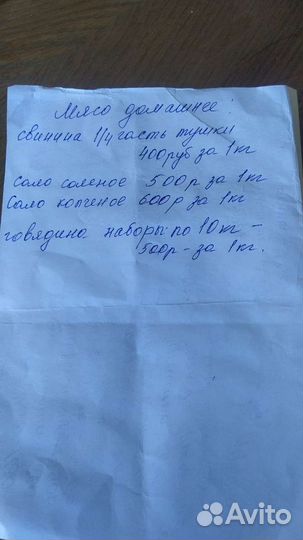 Мясо домашнее:
свинина 1/4 часть тушки
400 руб за 1 кг
Сало соленое 500р за 1 кг
Сало копченое 600р за 1 кг
говядина наборы по 10 кг -
500р - за 1 кг.
Avito